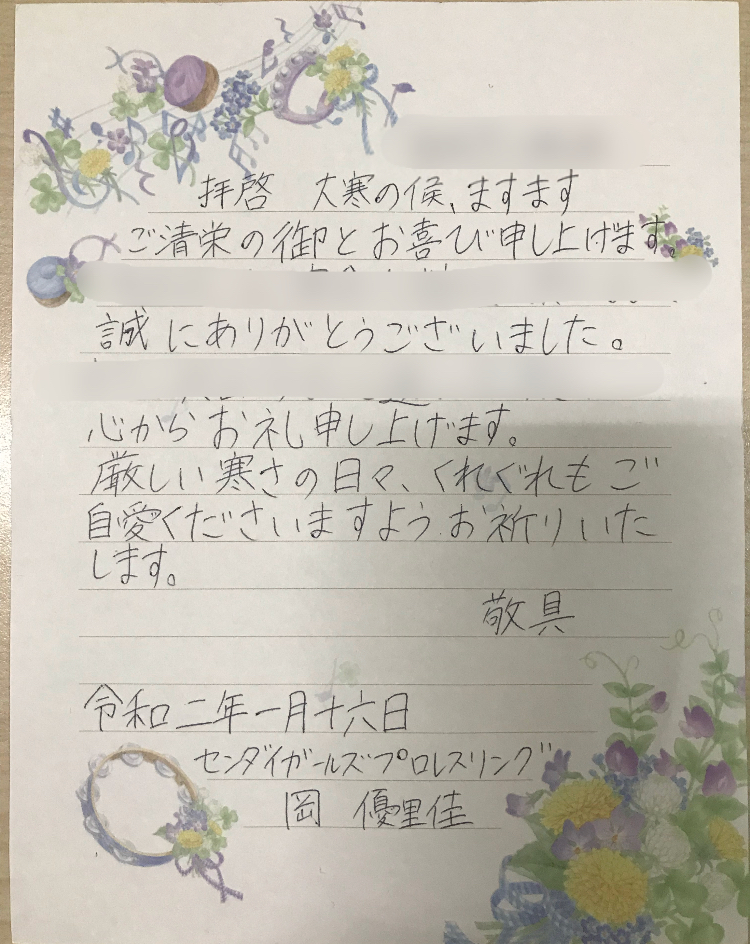 拝啓　大寒の候、ますます
ご清栄の御とお喜び申し上げます。
誠にありがとうございました。
心からお礼し申し上げます。
厳しい寒さの日々、くれぐれもご
自愛くださいますようお祈りいた
します。
敬具
令和二年一月十六日
センダイガールズプロレスリング
岡　優里佳